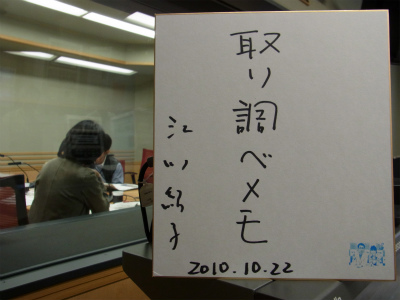 取り調べメモ
江川紹子
2010.10.22